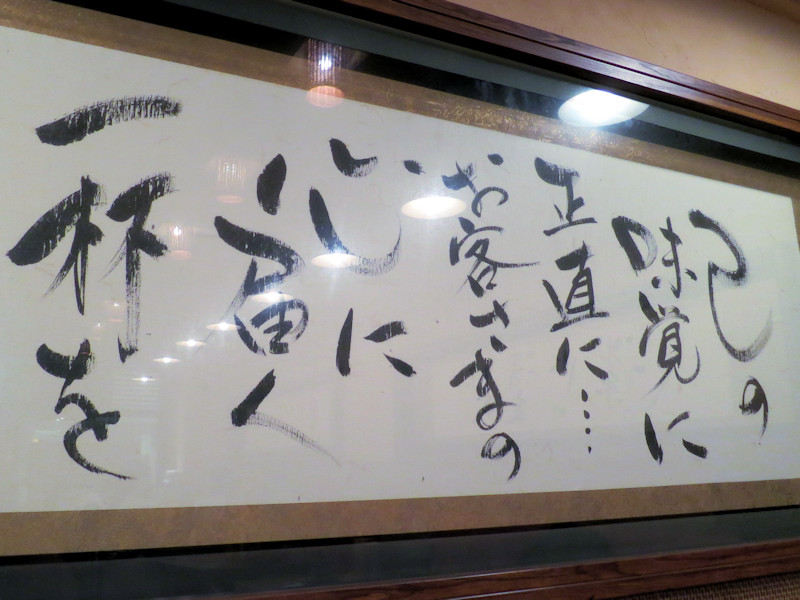 己の
味覚に
正直に…
お客さまの
心に
届く
一杯を